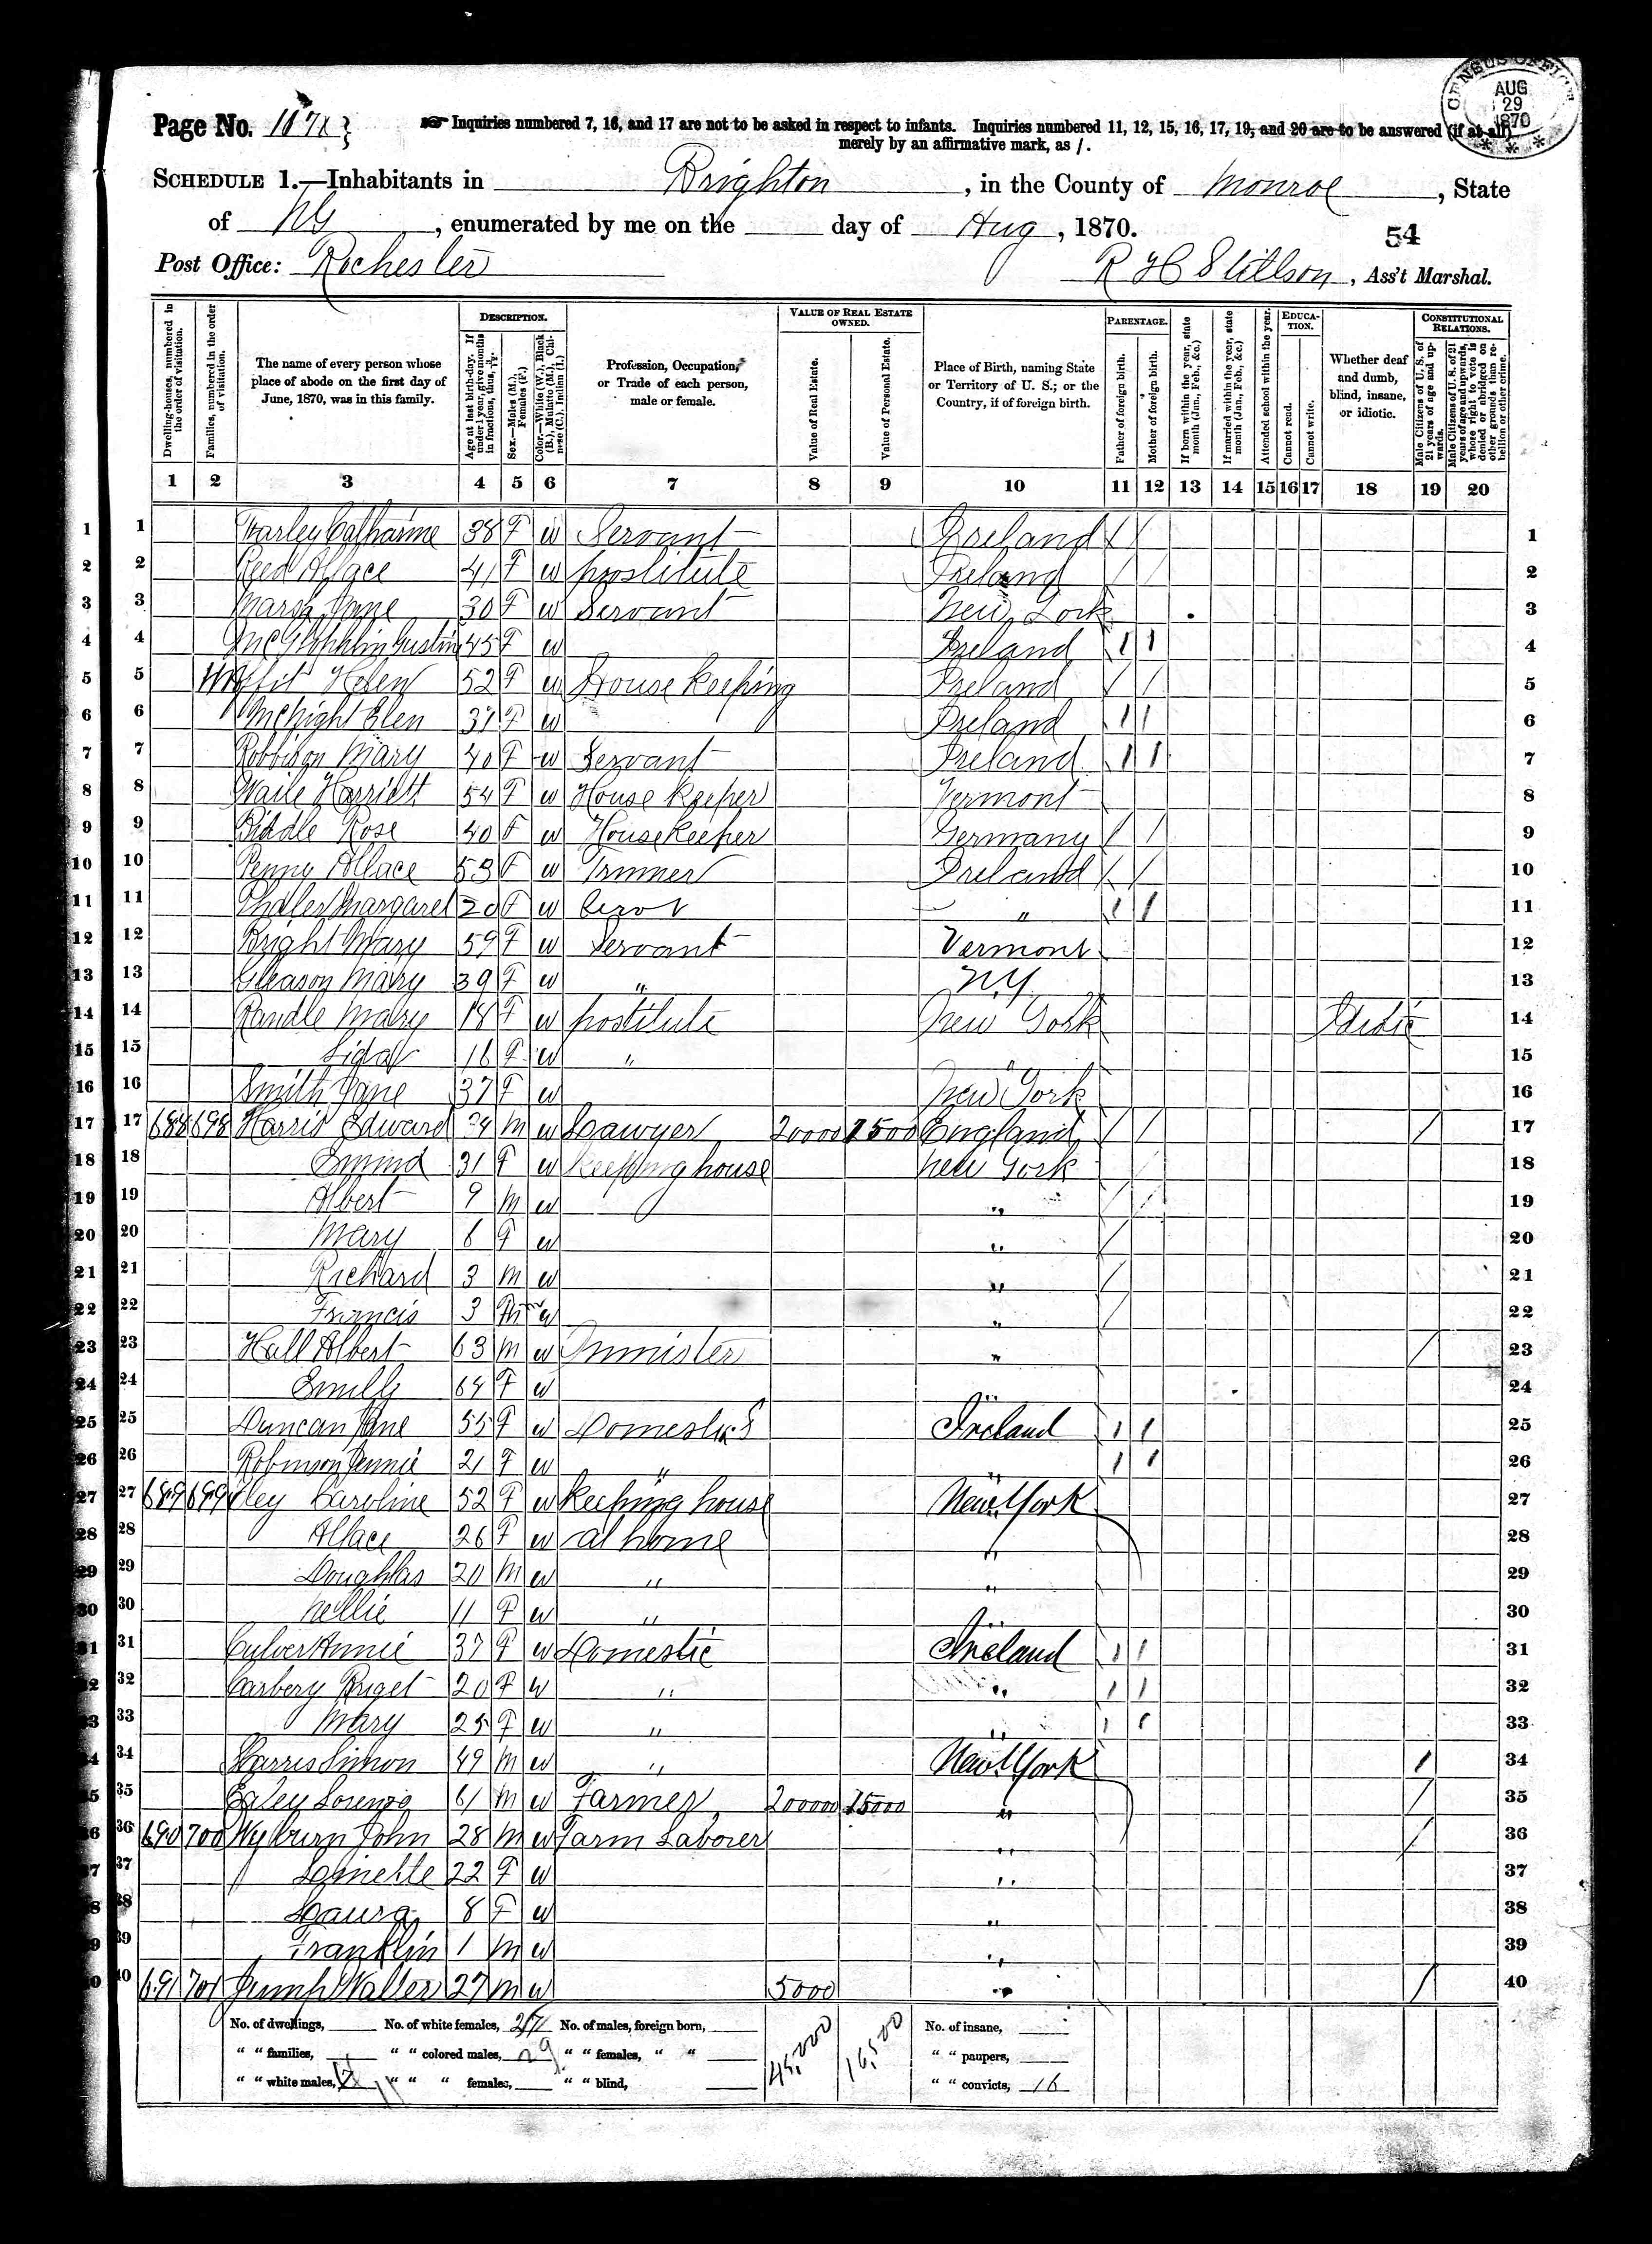 CENSUS OFFICE AUG 29 1870 * * *
Page No.
Inquiries numbered 7, 16, and 17 are not to be asked in respect to infants. Inquiries numbered 11, 12, 15, 16, 17, 19, and 20 are to be answered (if at all)
merely by an affirmative mark, as /.
SCHEDULE 1.—Inhabitants in Brighton, in the County of Monroe, State
of NY, enumerated by me on the day of Aug, 1870.
54
Post Office: Rochester R H Stillson, Ass't Marshal.
Dwelling-houses, numbered in the order of visitation.
Families, numbered in the order of visitation.
The name of every person whose place of abode on the first day of June, 1870, was in this family.
DESCRIPTION.
Age at last birth-day. If under 1 year, give months in fractions, thus, 3/12.
Sex.—Males (M.), Females (F.)
Color.—White (W.), Black (B.), Mulatto (M.), Chinese (C.), Indian (I.)
Profession, Occupation, or Trade of each person, male or female.
VALUE OF REAL ESTATE OWNED.
Value of Real Estate.
Value of Personal Estate.
Place of Birth, naming State or Territory of U. S.; or the Country, if of foreign birth.
PARENTAGE.
Father of foreign birth.
Mother of foreign birth.
If born within the year, state month (Jan., Feb., &c.)
If married within the year, state month (Jan., Feb., &c.)
Attended school within the year.
EDUCATION.
Cannot read.
Cannot write.
Whether deaf and dumb, blind, insane, or idiotic.
CONSTITUTIONAL RELATIONS.
Male Citizens of U. S. of 21 years of age and upwards.
Male Citizens of U. S. of 21 years of age and upwards, where right to vote is denied or abridged on other grounds than rebellion or other crime.
1 2 3 4 5 6 7 8 9 10 11 12 13 14 15 16 17 18 19 20
1 1 Catharine 38 F w Servant Ireland / / 1
2 2 Reed Allace 41 F w prostitute Ireland / / 2
3 3 Marsh Jane 30 F w Servant New York 3
4 4 45 F w Ireland 1 1 4
5 5 Helen 52 F w House Keeping Ireland / / 5
6 6 McKight Elen 37 F w Ireland 1 1 6
7 7 Robbison Mary 40 F w Servant Ireland 1 1 7
8 8 Waile Harriett 54 F w House Keeper Vermont 8
9 9 Biddle Rose 40 F w House Keeper Germany / / 9
10 10 Penny Allace 53 F w Ireland / / 10
11 11 Margaret 20 F w " 1 1 11
12 12 Bright Mary 59 F w Servant Vermont 12
13 13 Gleason Mary 39 F w " N.Y. 13
14 14 Randle Mary 18 F w postitute New York Idiotic 14
15 15 Lida 16 F w " " 15
16 16 Smith Jane 37 F w New York 16
17 17 688 698 Harris Edward 34 M w Lawyer 20000 1500 England / / / 17
18 18 Emma 31 F w Keeping house New York 18
19 19 Albert 9 M w " / / 19
20 20 Mary 6 F w " / 20
21 21 Richard 3 M w " / 21
22 22 Francis 3 M w " / 22
23 23 Hall Albert 63 M w Minister " / 23
24 24 Emily 64 F w " 24
25 25 Duncan Jane 55 F w Domestic Ireland 1 1 25
26 26 Robinson Jennie 21 F w " " 1 1 26
27 27 689 699 Eley Caroline 52 F w Keeping house New York 27
28 28 Allace 26 F w at home " 28
29 29 Doughlas 20 M w " " 29
30 30 Nellie 11 F w " " 30
31 31 Culver Annie 37 F w Domestic Ireland 1 1 31
32 32 Carbery Briget 20 F w " " 1 1 32
33 33 Mary 25 F w " " 1 1 33
34 34 Harris Simon 49 M w " New York 1 34
35 35 Eley Lorenzo 61 M w Farmer 200000 15000 " / 35
36 36 690 700 Wyburn John 28 M w Farm Laborer " / 36
37 37 22 F w " 37
38 38 Laura 8 F w " 38
39 39 Franklin 1 M w " 39
40 40 691 701 Jump Walter 27 M w 5000 " / 40
No. of dwellings, No. of white females, No. of males, foreign born, 45,000 16,500 No. of insane,
" " families, " " colored males, 29 " " females, " " " " paupers,
" " white males, 11 " " " females, " " blind, " " convicts, 16